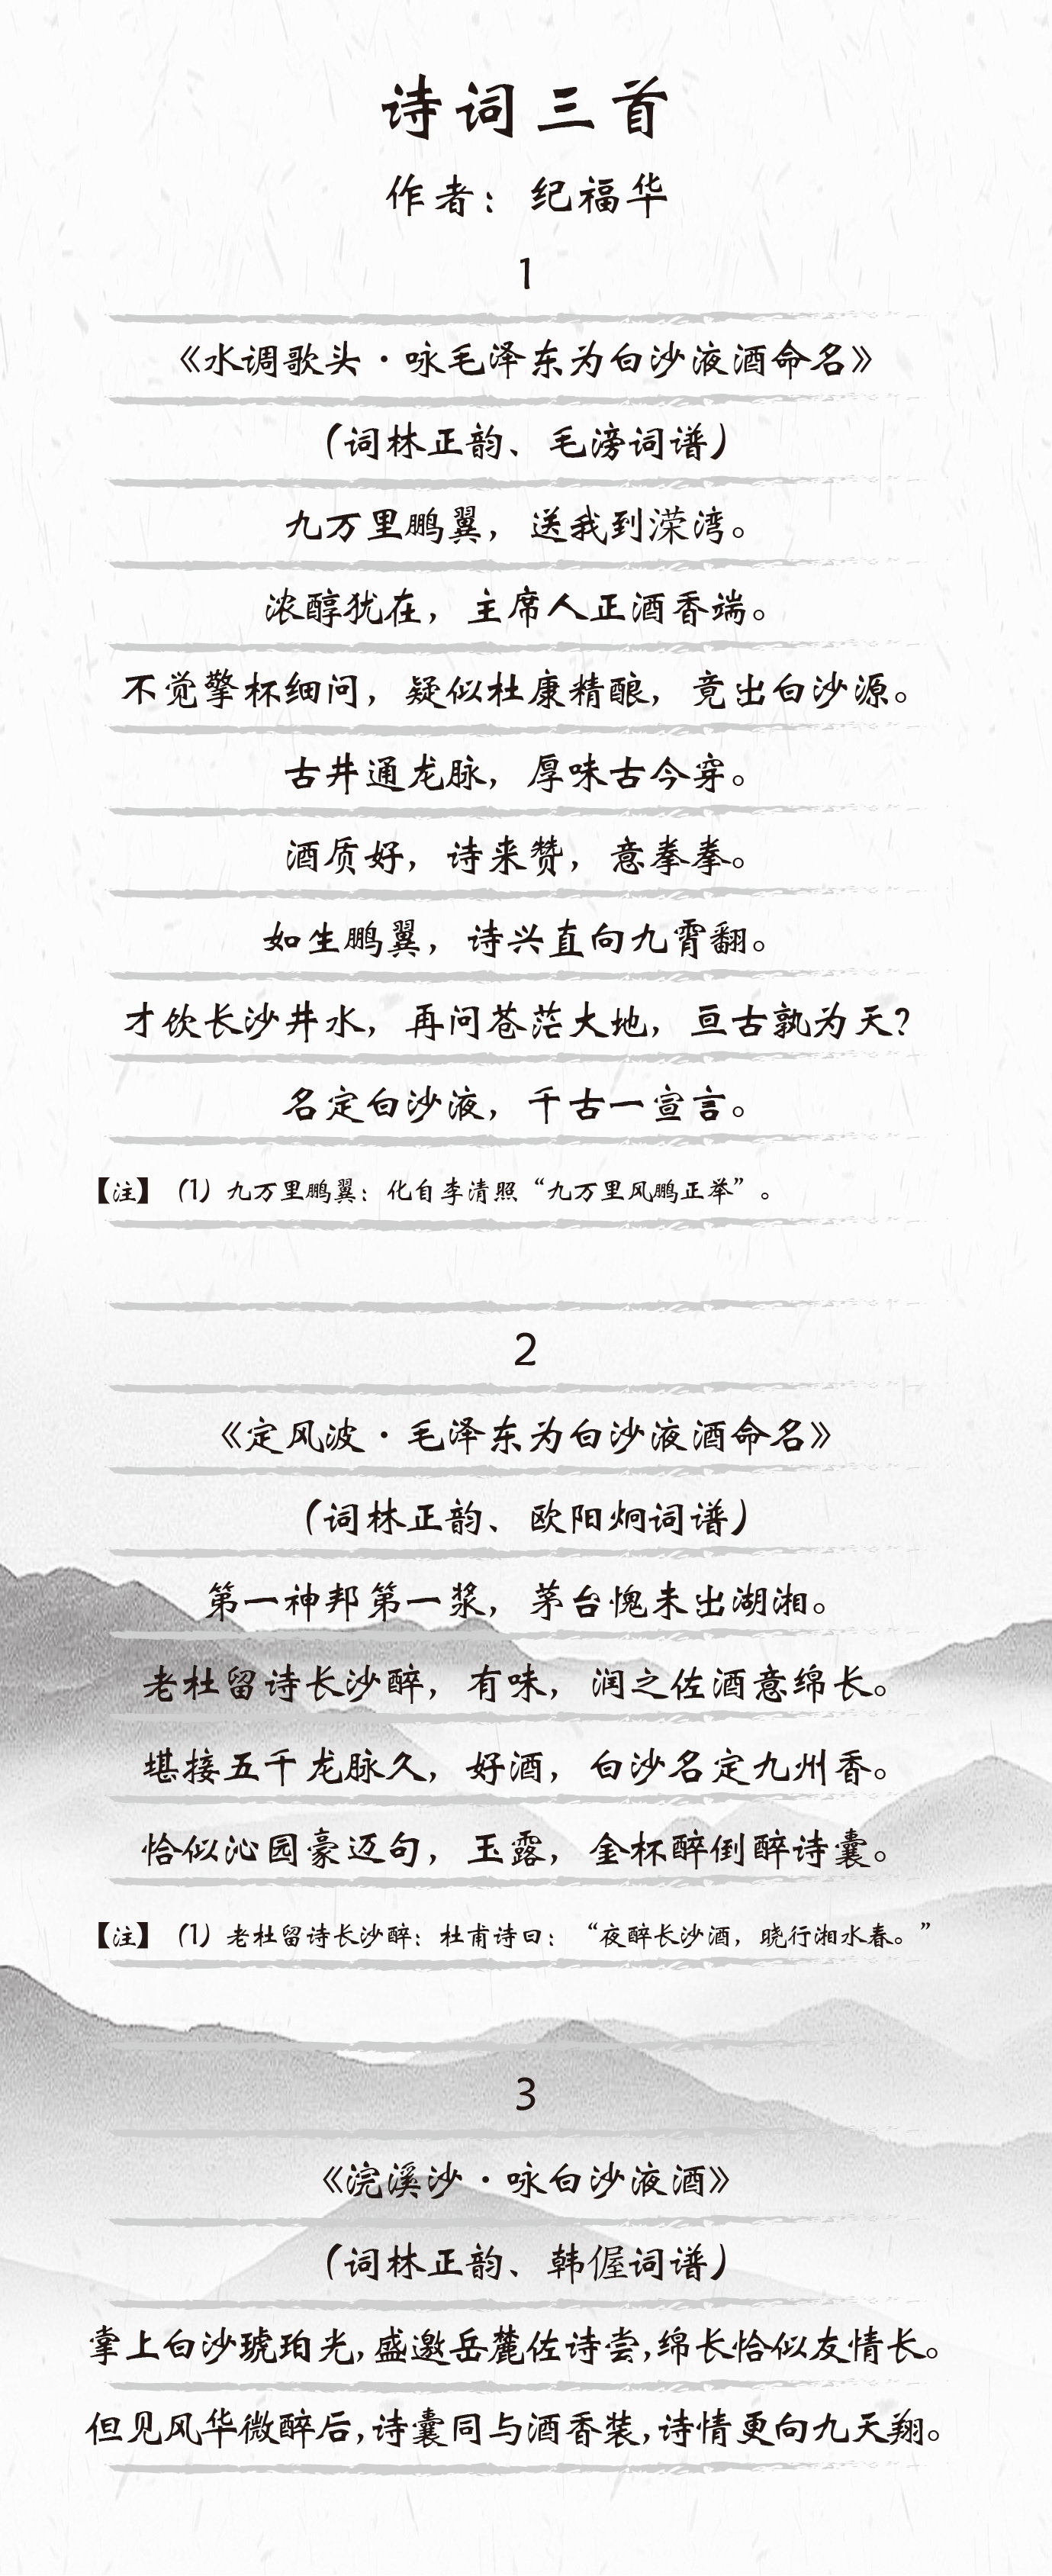 诗词三首
作者：纪福华
1
《水调歌头·咏毛泽东为白沙液酒命名》
（词林正韵、毛滂词谱）
九万里鹏翼，送我到溁湾。
浓醇犹在，主席人正酒香端。
不觉擎杯细问，疑似杜康精酿，竟出白沙源。
古井通龙脉，厚味古今穿。
酒质好，诗来赞，意拳拳。
如生鹏翼，诗兴直向九霄翻。
才饮长沙井水，再问苍茫大地，亘古孰为天？
名定白沙液，千古一宣言。
【注】（1）九万里鹏翼：化自李清照“九万里风鹏正举”。
2
《定风波·毛泽东为白沙液酒命名》
（词林正韵、欧阳炯词谱）
第一神邦第一浆，茅台愧未出湖湘。
老杜留诗长沙醉，有味，润之佐酒意绵长。
堪接五千龙脉久，好酒，白沙名定九州香。
恰似沁园豪迈句，玉露，金杯醉倒醉诗囊。
【注】（1）老杜留诗长沙醉：杜甫诗曰：“夜醉长沙酒，晓行湘水春。”
3
《浣溪沙·咏白沙液酒》
（词林正韵、韩偓词谱）
掌上白沙琥珀光,盛邀岳麓佐诗尝,绵长恰似友情长。
但见风华微醉后,诗囊同与酒香装,诗情更向九天翔。